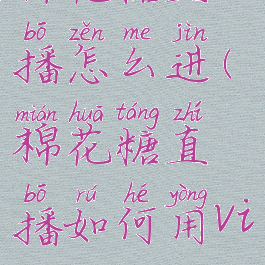 bō zěn me jìn
播怎么进(
mián huā táng zhí
棉花糖直
bō rú hé yòng
播如何用vi